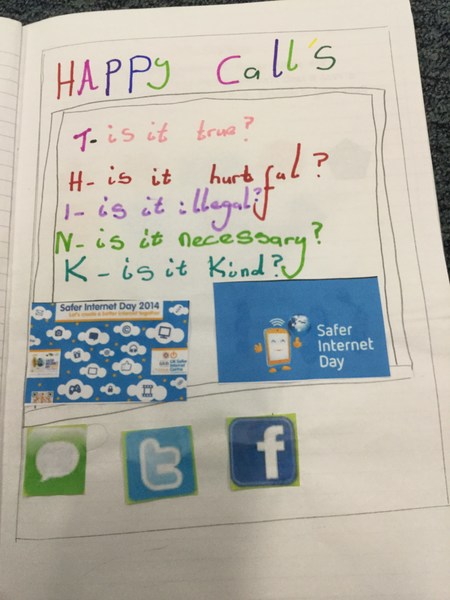 HAPPy Call's
T- is it true?
H- is it hurtful?
I- is it illegal?
N- is it necessary?
K- is it Kind?
Safer Internet Day 2014
Let's create a better internet together
Safer
Internet
Day